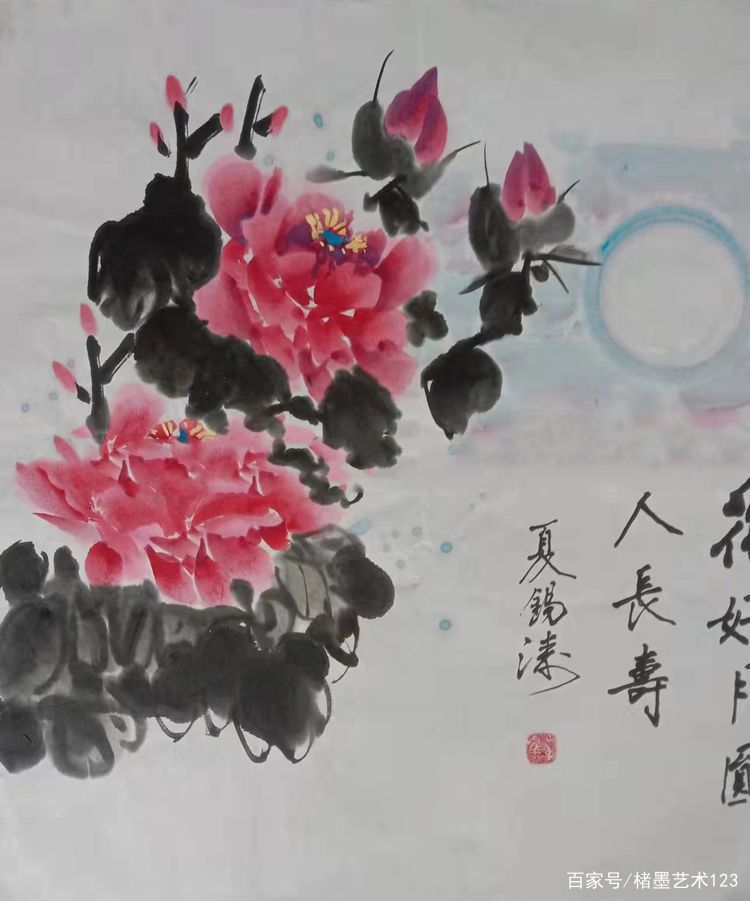 花好月圓
人長壽
夏錫涛
百家号/楮墨艺术123